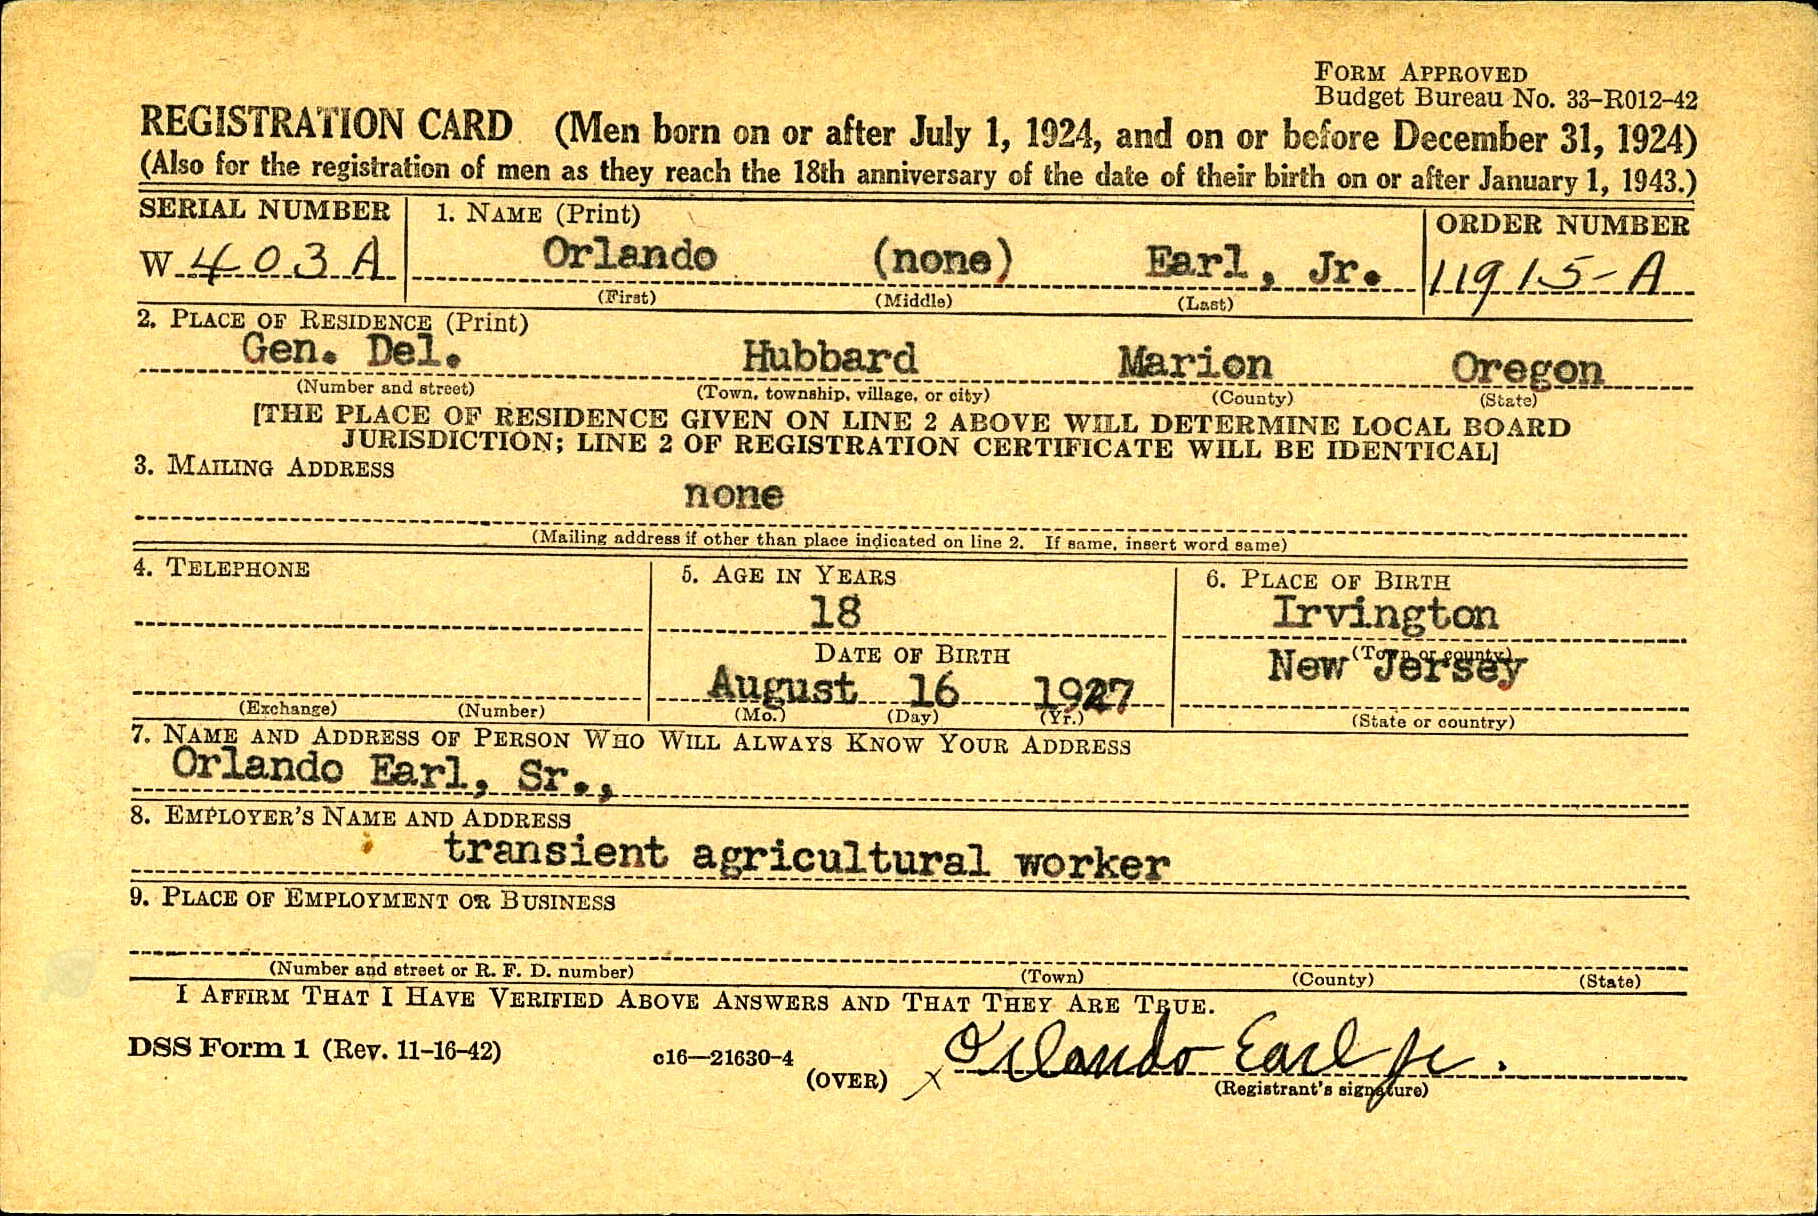 FORM APPROVED
Budget Bureau No. 33-R012-42
REGISTRATION CARD (Men born on or after July 1, 1924, and on or before December 31, 1924)
(Also for the registration of men as they reach the 18th anniversary of the date of their birth on or after January 1, 1943.)
SERIAL NUMBER 1. NAME (Print) ORDER NUMBER
W 403A Orlando (none) Earl, Jr. 11915-A
(First) (Middle) (Last)
2. PLACE OF RESIDENCE (Print)
Gen. Del. Hubbard Marion Oregon
(Number and street) (Town, township, village, or city) (County) (State)
[THE PLACE OF RESIDENCE GIVEN ON LINE 2 ABOVE WILL DETERMINE LOCAL BOARD
JURISDICTION; LINE 2 OF REGISTRATION CERTIFICATE WILL BE IDENTICAL]
3. MAILING ADDRESS
none
(Mailing address if other than place indicated on line 2. If same, insert word same)
4. TELEPHONE 5. AGE IN YEARS 6. PLACE OF BIRTH
18 Irvington
DATE OF BIRTH (Town or county)
August 16 1927 New Jersey
(Exchange) (Number) (Mo.) (Day) (Yr.) (State or country)
7. NAME AND ADDRESS OF PERSON WHO WILL ALWAYS KNOW YOUR ADDRESS
Orlando Earl, Sr.,
8. EMPLOYER'S NAME AND ADDRESS
transient agricultural worker
9. PLACE OF EMPLOYMENT OR BUSINESS
(Number and street or R. F. D. number) (Town) (County) (State)
I AFFIRM THAT I HAVE VERIFIED ABOVE ANSWERS AND THAT THEY ARE TRUE.
DSS Form 1 (Rev. 11-16-42) c16—21630-4 (OVER) x Orlando Earl Jr.
(Registrant's signature)